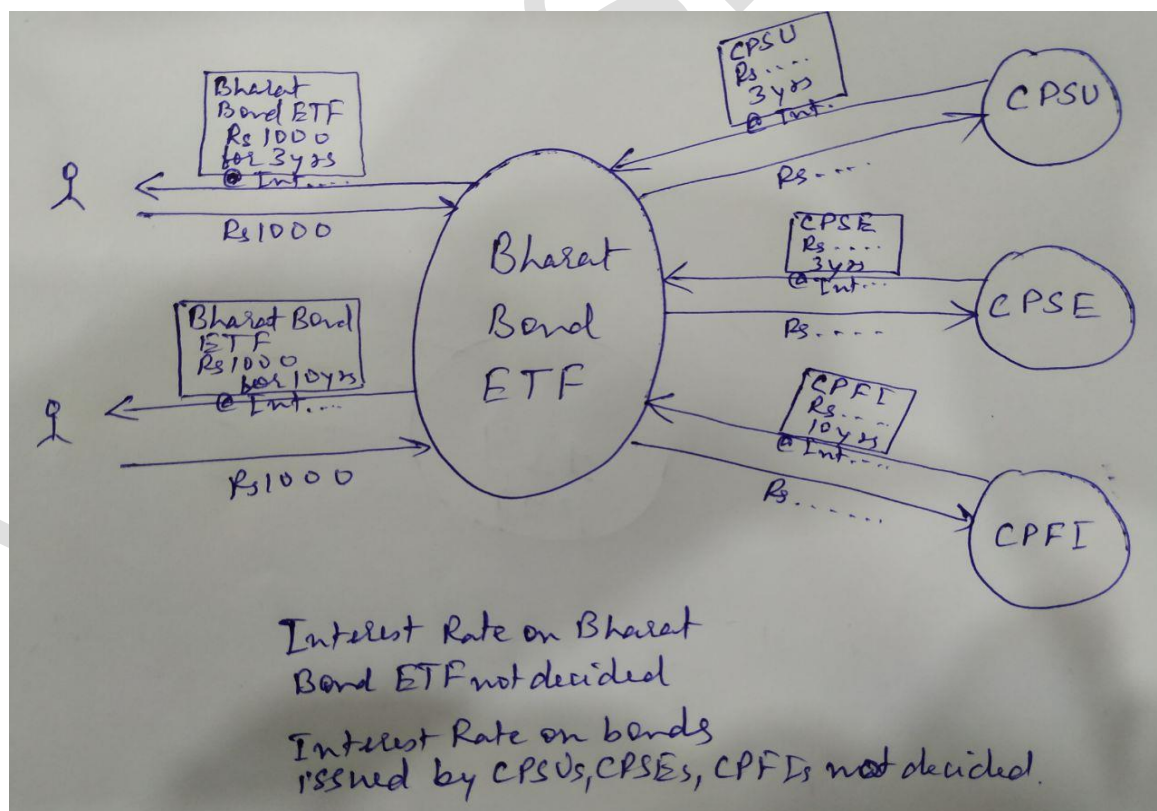 Bharat
Bond ETF
Rs 1000
for 3yrs
@ Int....
Rs 1000
Bharat Bond
ETF
Rs 1000
for 10yrs
@ Int....
Rs 1000
Bharat
Bond
ETF
CPSU
Rs....
3 yrs
@ Int..
Rs....
CPSU
CPSE
Rs.....
3yrs
@ Int...
Rs.....
CPSE
CPFI
Rs....
10yrs
@ Int....
Rs......
CPFI
Interest Rate on Bharat
Bond ETF not decided
Interest Rate on bonds
issued by CPSUs, CPSEs, CPFIs not decided.